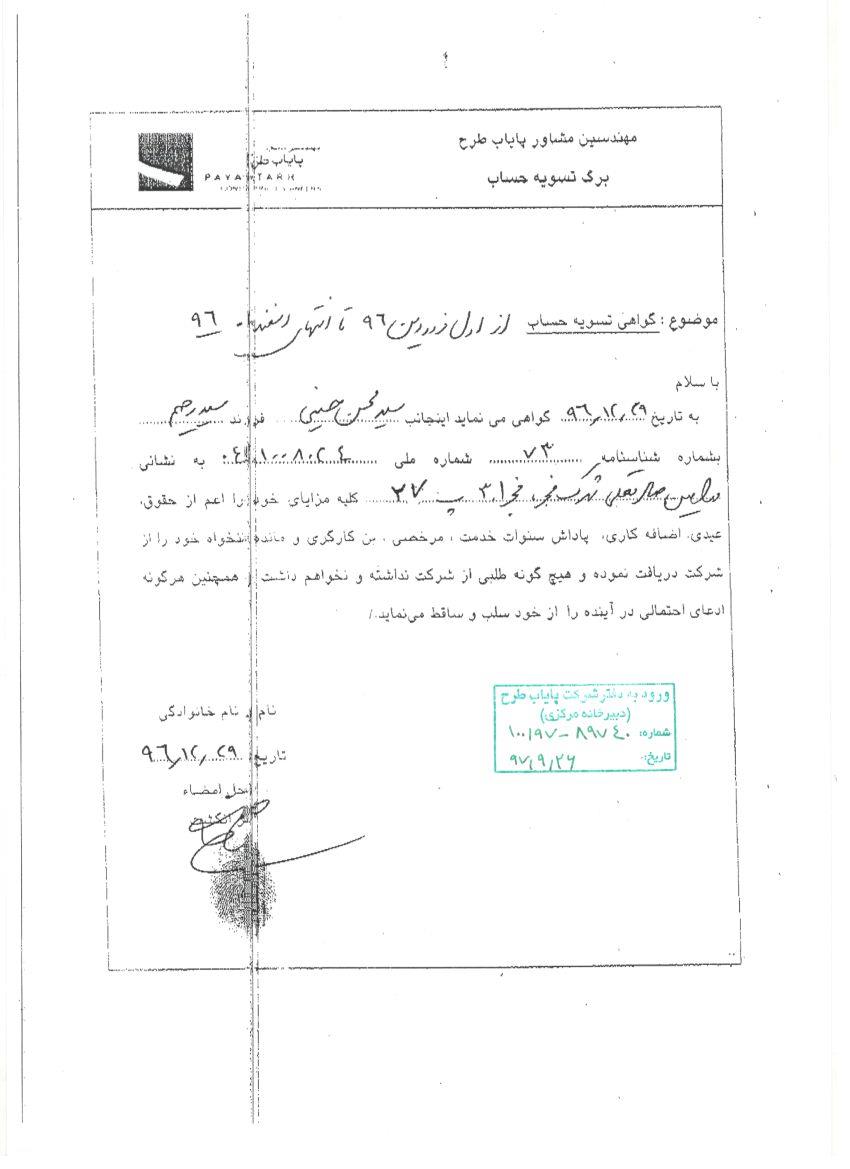 مهندسین مشاور پایاب طرح
برگ تسویه حساب
پایاب طرح
PAYAB TARH
موضوع : گواهی تسویه حساب از اول فروردین ۹۶ تا انتهای اسفند ۹۶
با سلام
به تاریخ ۹۶/۱۲/۲۹ گواهی می نماید اینجانب سید محسن حسینی فرزند سید رحیم
بشماره شناسنامه ۷۳ شماره ملی به نشانی
پ ۲۷ کلیه مزایای خود را اعم از حقوق،
عیدی، اضافه کاری، پاداش سنوات خدمت ، مرخصی ، بن کارگری و مانده تنخواه خود را از
شرکت دریافت نموده و هیچ گونه طلبی از شرکت نداشته و نخواهم داشت و همچنین هرگونه
ادعای احتمالی در آینده را از خود سلب و ساقط می‌نماید./
ورود به دفتر شرکت پایاب طرح
(دبیرخانه مرکزی)
شماره: ۱۰۰/۹۷-۸۹۷۴۰
تاریخ: ۹۷/۹/۲۶
نام و نام خانوادگی
تاریخ ۹۶/۱۲/۲۹
محل امضاء